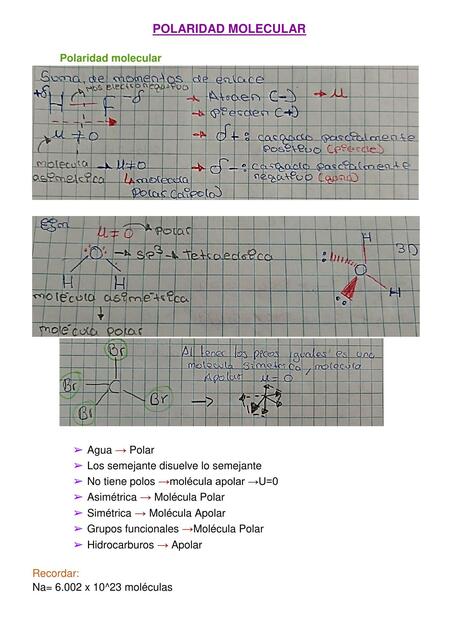 POLARIDAD MOLECULAR
Polaridad molecular
Suma de momentos de enlace
+δ mas electronegativo -δ
H F
→ Atraen (-) → μ
→ Pierden (+)
μ ≠ 0
→ δ+: cargado parcialmente
positivo (pierde)
molecula → μ≠0
asimetrica
molecula
polar (dipolo)
→ δ-: cargado parcialmente
negativo (gana)
Ejm
μ=0 → polar
O → sp³ → Tetraedrica
H H
molécula asimétrica
molécula polar
H
3D
O
H
Br
Br C
Br Br
Al tener los pesos iguales es una
molécula simetrica, molécula
Apolar μ=0
➢ Agua → Polar
➢ Los semejante disuelve lo semejante
➢ No tiene polos →molécula apolar →U=0
➢ Asimétrica → Molécula Polar
➢ Simétrica → Molécula Apolar
➢ Grupos funcionales →Molécula Polar
➢ Hidrocarburos → Apolar
Recordar:
Na= 6.002 x 10^23 moléculas